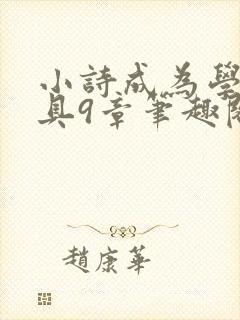 小詩成為學
具9章筆趣閱
趙康華